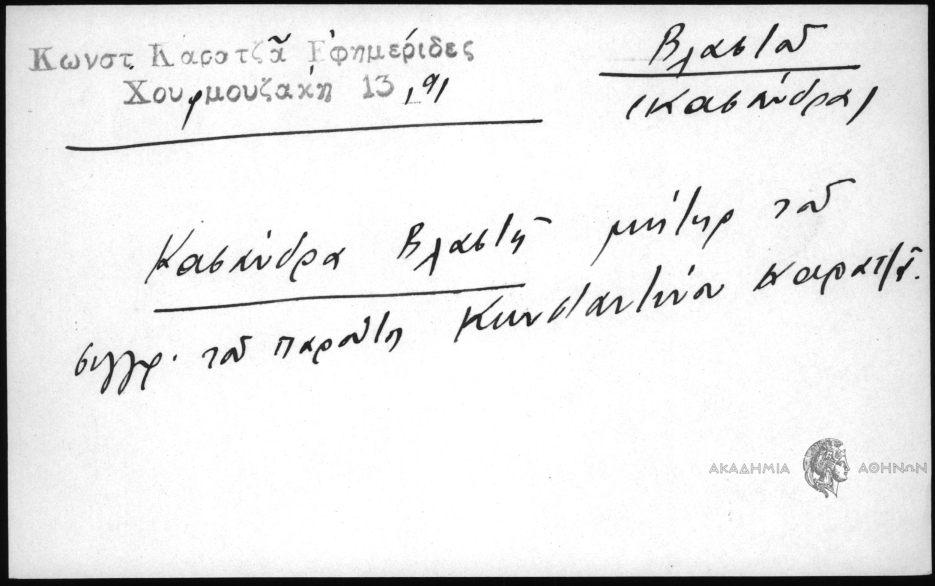 Κωνστ. Καρατζᾶ Ἐφημερίδες
Χουρμουζάκη 13, 191
Βλαστοῦ
(Κασάνδρα)
Κασάνδρα Βλαστῆ μήτηρ τοῦ
συγγρ. τοῦ παρόντος Κωνσταντίνου Καρατζᾶ.
ΑΚΑΔΗΜΙΑ ΑΘΗΝΩΝ